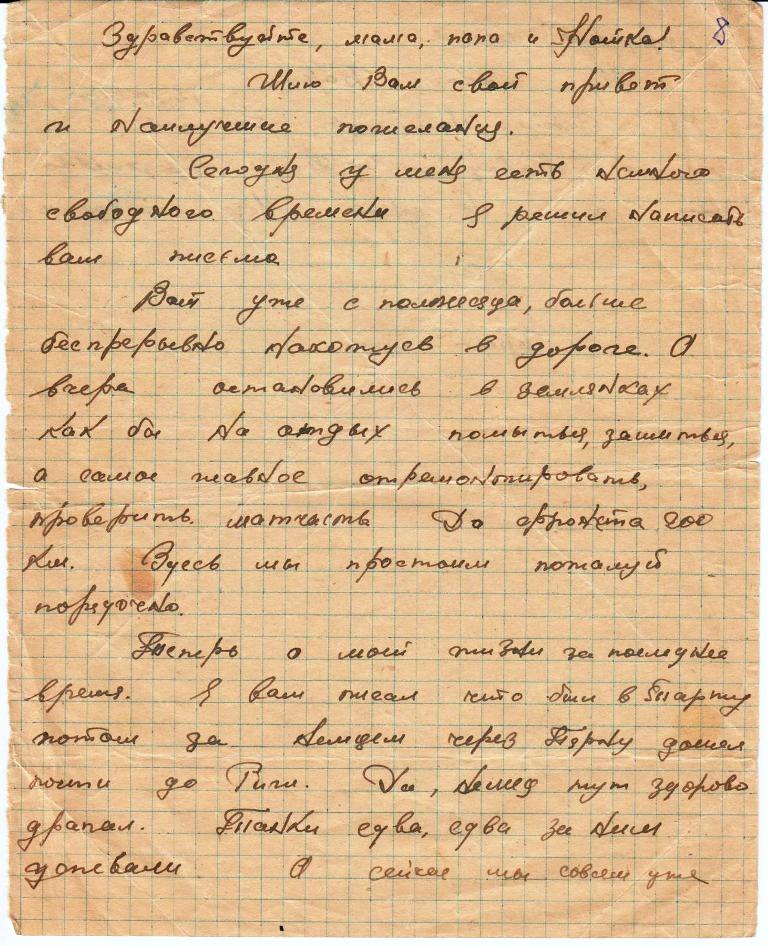 8
Здравствуйте, мама, папа и Натка!
Шлю Вам свой привет
и наилучшие пожелания.
Сегодня у меня есть немного
свободного времени Я решил написать
вам письмо
Вот уже с полмесяца, больше
беспрерывно нахожусь в дороге. А
вчера остановились в землянках
как бы на отдых помыться, зашиться,
а самое главное отремонтировать,
проверить матчасть До фронта 200
км. Здесь мы простоим пожалуй
порядочно.
Теперь о моей жизни за последнее
время. Я вам писал что был в Тарту
потом за немцем через Пярну дошел
почти до Риги. Да, немец тут здорово
драпал. Танки едва, едва за ним
успевали А сейчас мы совсем уже